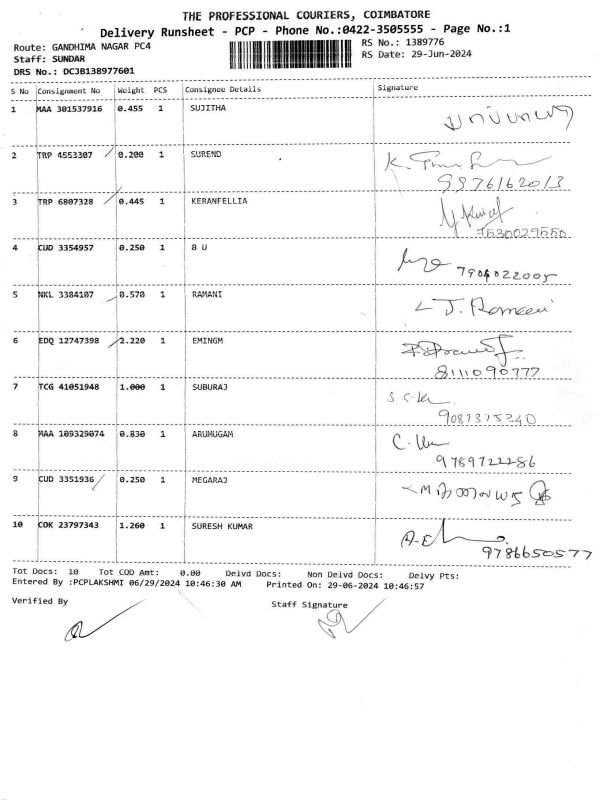 THE PROFESSIONAL COURIERS, COIMBATORE
Delivery Runsheet - PCP - Phone No.:0422-3505555 - Page No.:1
Route: GANDHIMA NAGAR PC4
RS No.: 1389776
Staff: SUNDAR
RS Date: 29-Jun-2024
DRS No.: DCJB138977601
S No Consignment No Weight PCS Consignee Details Signature
1 MAA 301537916 0.455 1 SUJITHA
2 TRP 4553307 0.200 1 SUREND
9976162013
3 TRP 6807328 0.445 1 KERANFELLIA
7530029550
4 CUD 3354957 0.250 1 B U
7904022005
5 NKL 3384107 0.570 1 RAMANI J. Rameni
6 EDQ 12747398 2.220 1 EMINGM
8111090777
7 TCG 41051948 1.000 1 SUBURAJ
9087375340
8 MAA 109329074 0.830 1 ARUMUGAM
9789722286
9 CUD 3351936 0.250 1 MEGARAJ
10 COK 23797343 1.260 1 SURESH KUMAR
9786650577
Tot Docs: 10 Tot COD Amt: 0.00 Delvd Docs: Non Delvd Docs: Delvy Pts:
Entered By :PCPLAKSHMI 06/29/2024 10:46:30 AM Printed On: 29-06-2024 10:46:57
Verified By Staff Signature